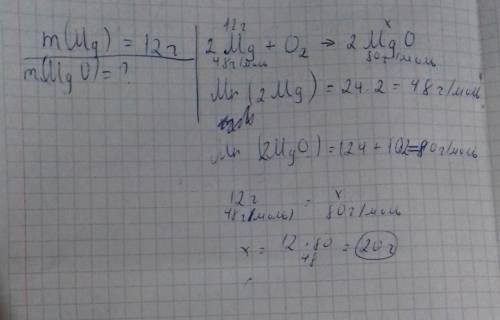 m(Mg) = 12г
m(MgO) = ?
12г x
2Mg + O₂ → 2MgO
48г/моль 80г/моль
Mr (2Mg) = 24·2 = 48г/моль
Mr (2MgO) = =80г/моль
12г = x
48г/моль) 80г/моль
x = 12·80 = 20г
48